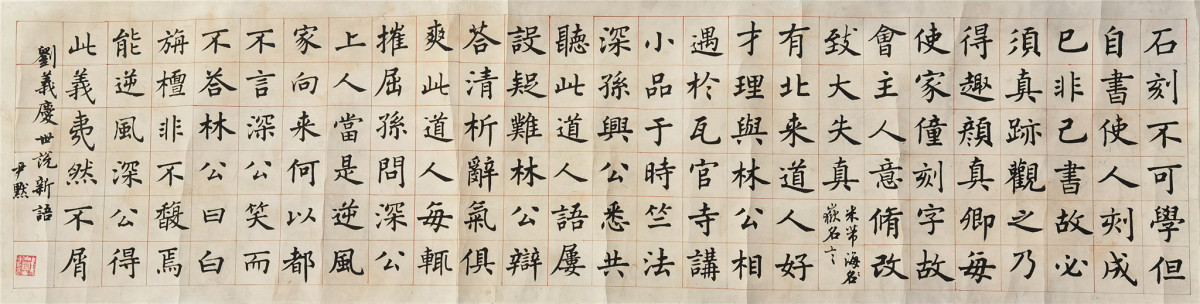 石刻不可學但
自書使人刻成
已非己書故必
須真跡觀之乃
得趣顔真卿每
使家僮刻字故
會主人意脩改
致大失真
米芾海
嶽名言
有北来道人好
才理與林公相
遇於瓦官寺講
小品于時竺法
深孫興公悉共
聽此道人語屢
設疑難林公辯
荅清析辭氣俱
爽此道人每輒
摧屈孫問深公
上人當是逆風
家向来何以都
不言深公笑而
不荅林公曰白
旃檀非不馥焉
能逆風深公得
此義夷然不屑
劉義慶世説新語
尹默